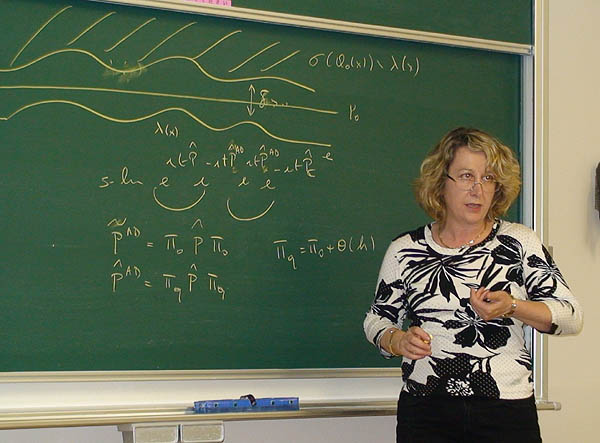 σ(Q₀(x)) \ λ(x)
δ > ...
P₀
λ(x)
itP̂ -itP̂ᴬᴰ itP̂ᴬᴰ -itP̂
s-lim e e e e
P̂ᴬᴰ = Π₀ P̂ Π₀
Π_q = Π₀ + Θ(h)
P̂ᴬᴰ = Π_q P̂ Π_q